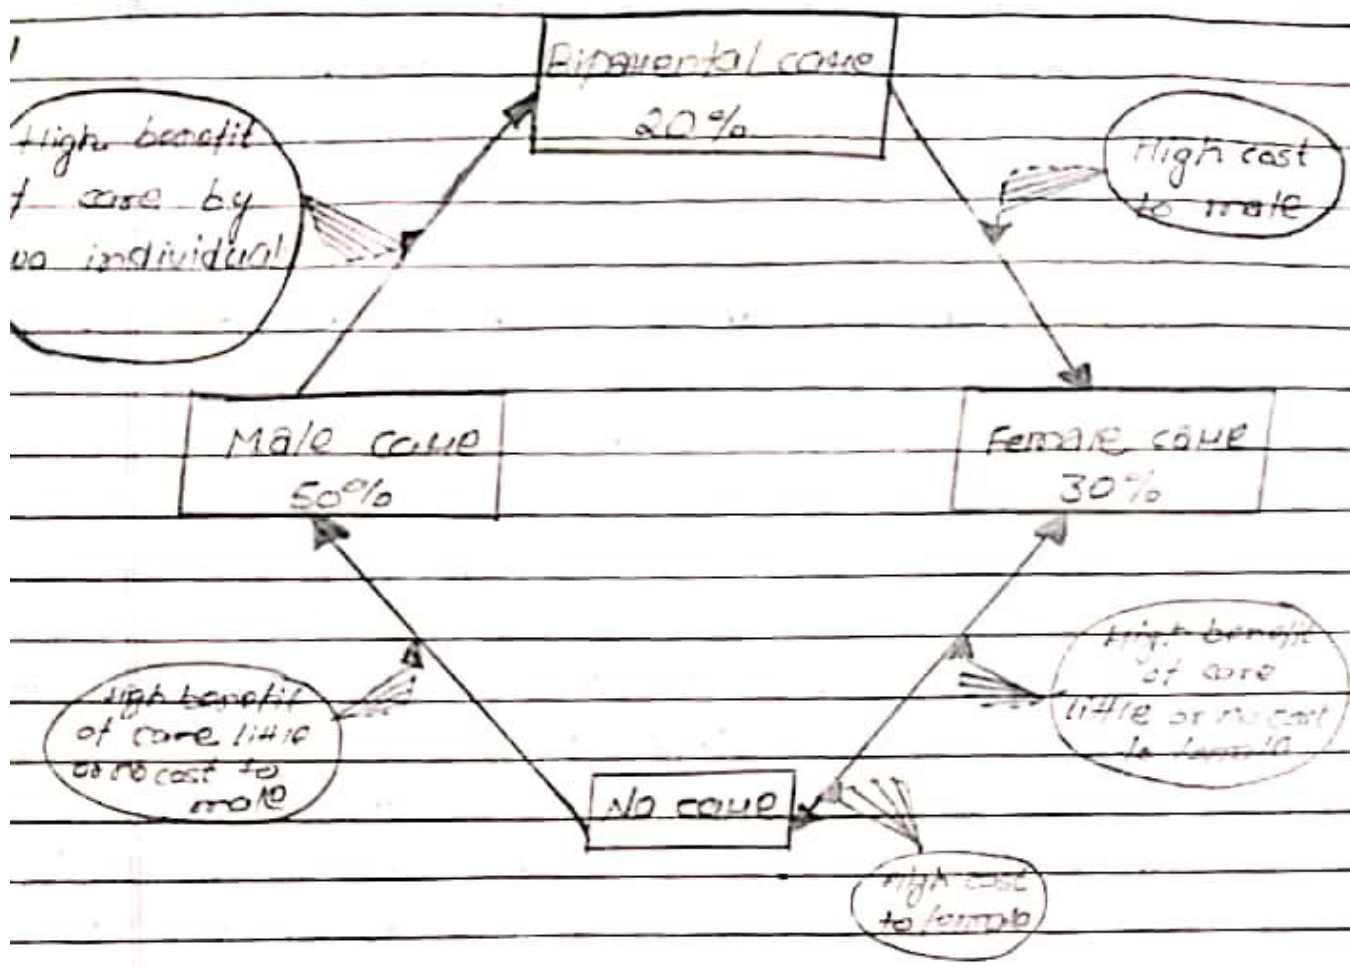 Biparental care
20%
High benefit
of care by
two individual
High cost
to male
Male care
50%
Female care
30%
High benefit
of care little
or no cost to
male
High benefit
of care
little or no cost
to female
No care
High cost
to female